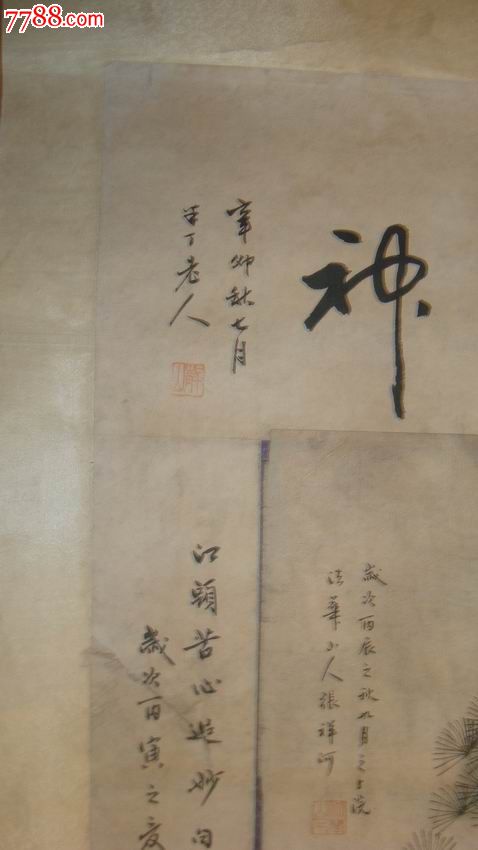 7788.com
神
辛卯秋七月
半丁老人
江頭苦心追妙句
歲次丙寅之
歲次丙辰之秋九月之上浣
法華山人張祥河